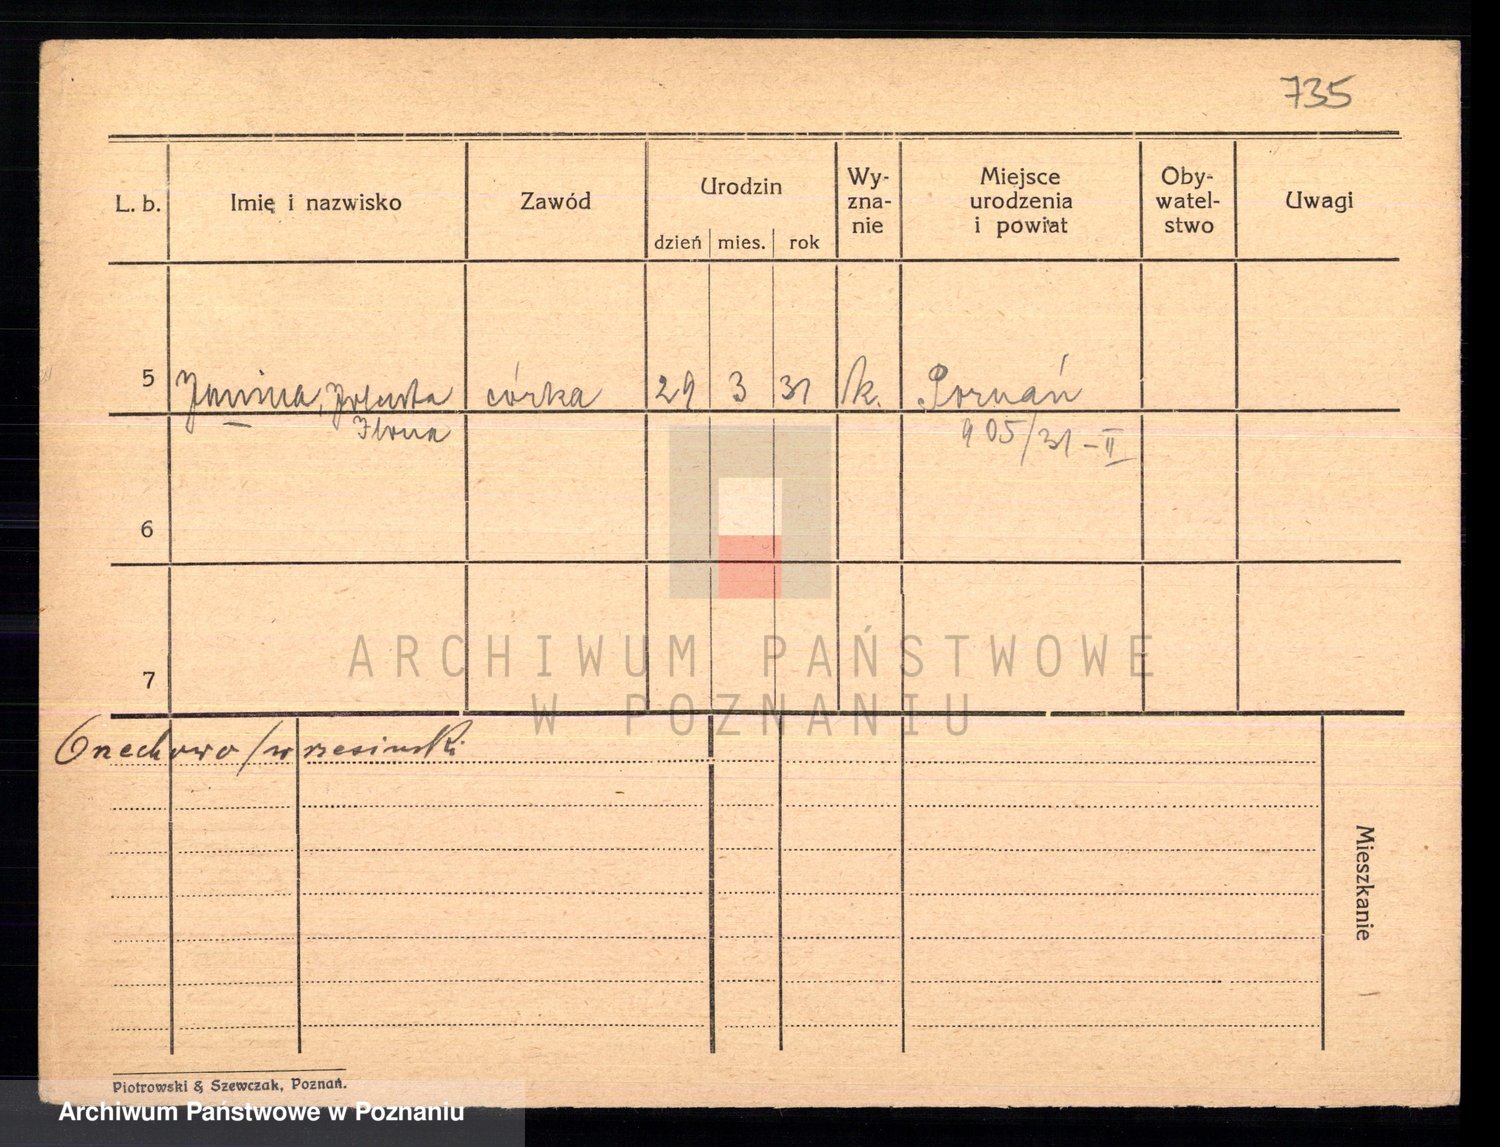 735
L. b.
Imię i nazwisko
Zawód
Urodzin
dzień
mies.
rok
Wy-
zna-
nie
Miejsce
urodzenia
i powiat
Oby-
watel-
stwo
Uwagi
5
Janina, Jolanta
Ilona
córka
29
3
31
k.
Poznań
905/31-II
6
7
ARCHIWUM PAŃSTWOWE
W POZNANIU
Orzechowo / wrzesiński
Mieszkanie
Piotrowski & Szewczak, Poznań.
Archiwum Państwowe w Poznaniu